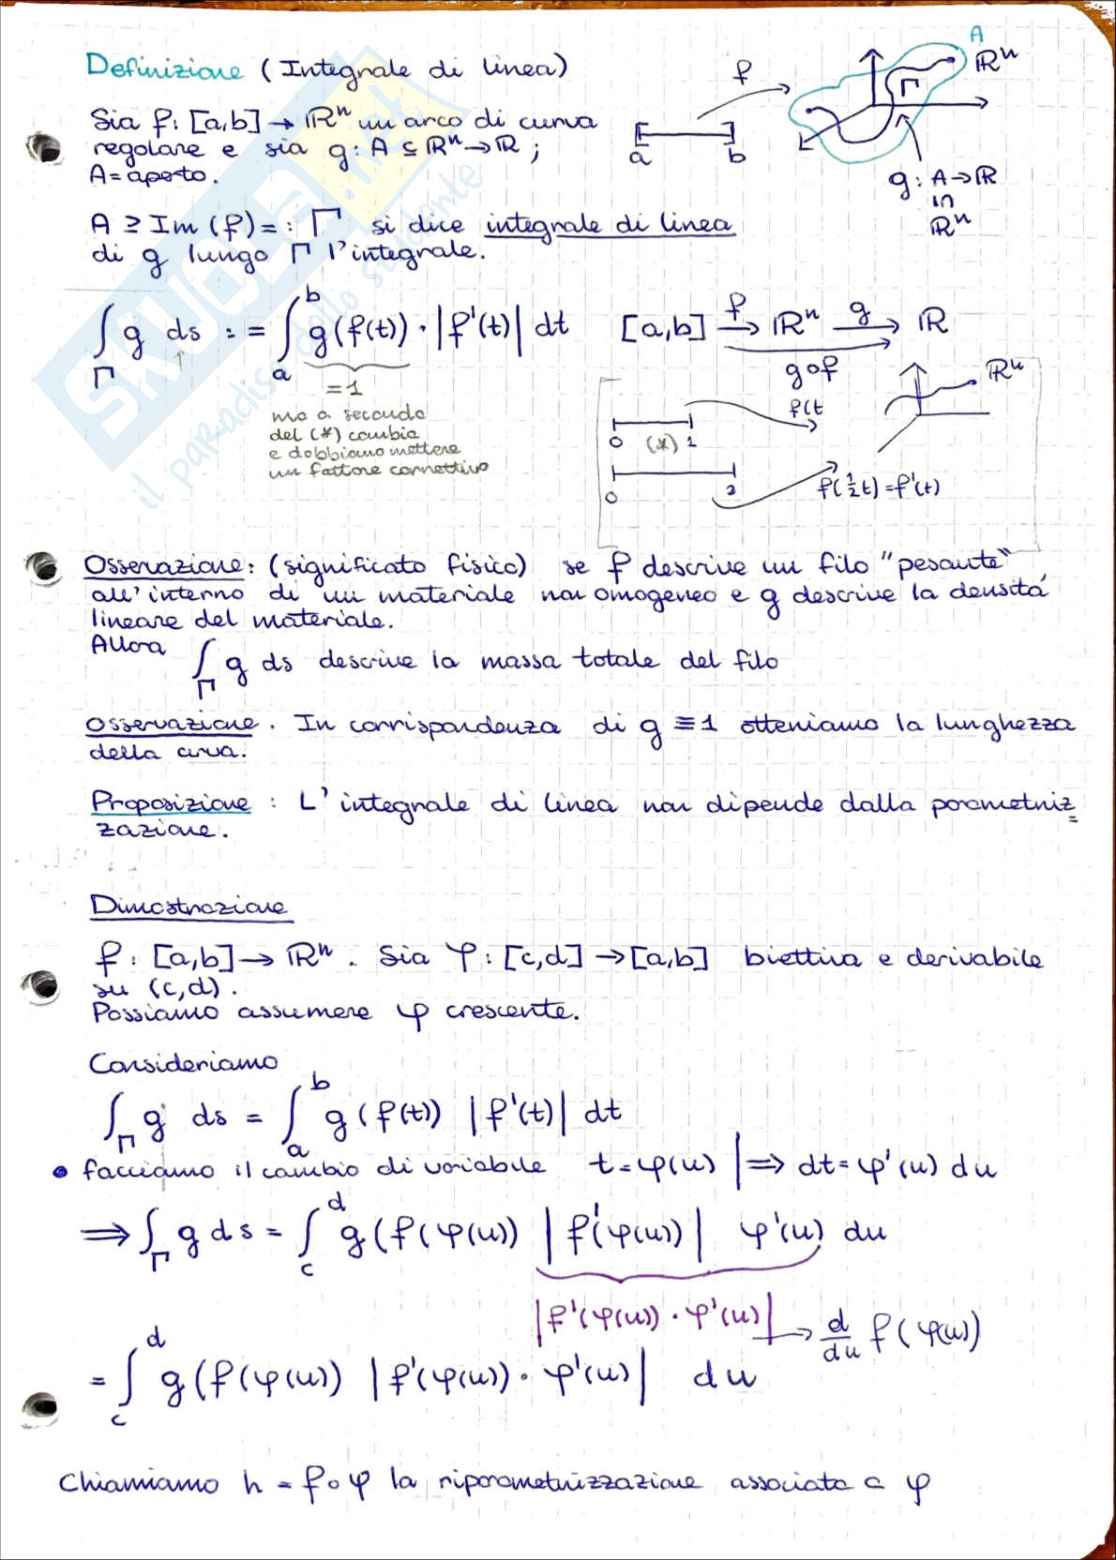 Definizione (Integrale di linea)
Sia f: [a,b] → ℝⁿ un arco di curva
regolare e sia g: A ⊆ ℝⁿ → ℝ ;
A = aperto.
f
a b
A
ℝⁿ
Γ
g: A → ℝ
in
ℝⁿ
A ⊇ Im (f) =: Γ si dice integrale di linea
di g lungo Γ l'integrale.
∫_Γ g ds := ∫_a^b g(f(t)) · |f'(t)| dt
=1
ma a seconda
del (*) cambia
e dobbiamo mettere
un fattore correttivo
[a,b] →f ℝⁿ →g ℝ
g∘f
0 (*) 1
f(t
ℝⁿ
0 2
f(½t) = f'(t)
Osservazione: (significato fisico) se f descrive un filo "pesante"
all'interno di un materiale non omogeneo e g descrive la densità
lineare del materiale.
Allora ∫_Γ g ds descrive la massa totale del filo
Osservazione. In corrispondenza di g ≡ 1 otteniamo la lunghezza
della curva.
Proposizione: L'integrale di linea non dipende dalla parametriz=
zazione.
Dimostrazione
f: [a,b] → ℝⁿ. Sia φ: [c,d] → [a,b] biettiva e derivabile
su (c,d).
Possiamo assumere φ crescente.
Consideriamo
∫_Γ g ds = ∫_a^b g(f(t)) |f'(t)| dt
• facciamo il cambio di variabile t = φ(u) | ⇒ dt = φ'(u) du
⇒ ∫_Γ g ds = ∫_c^d g(f(φ(u)) |f'(φ(u))| φ'(u) du
|f'(φ(u)) · φ'(u)| → d/du f(φ(u))
= ∫_c^d g(f(φ(u)) |f'(φ(u)) · φ'(u)| du
Chiamiamo h = f∘φ la riparametrizzazione associata a φ
SKUOLA.net
il paradiso dello studente